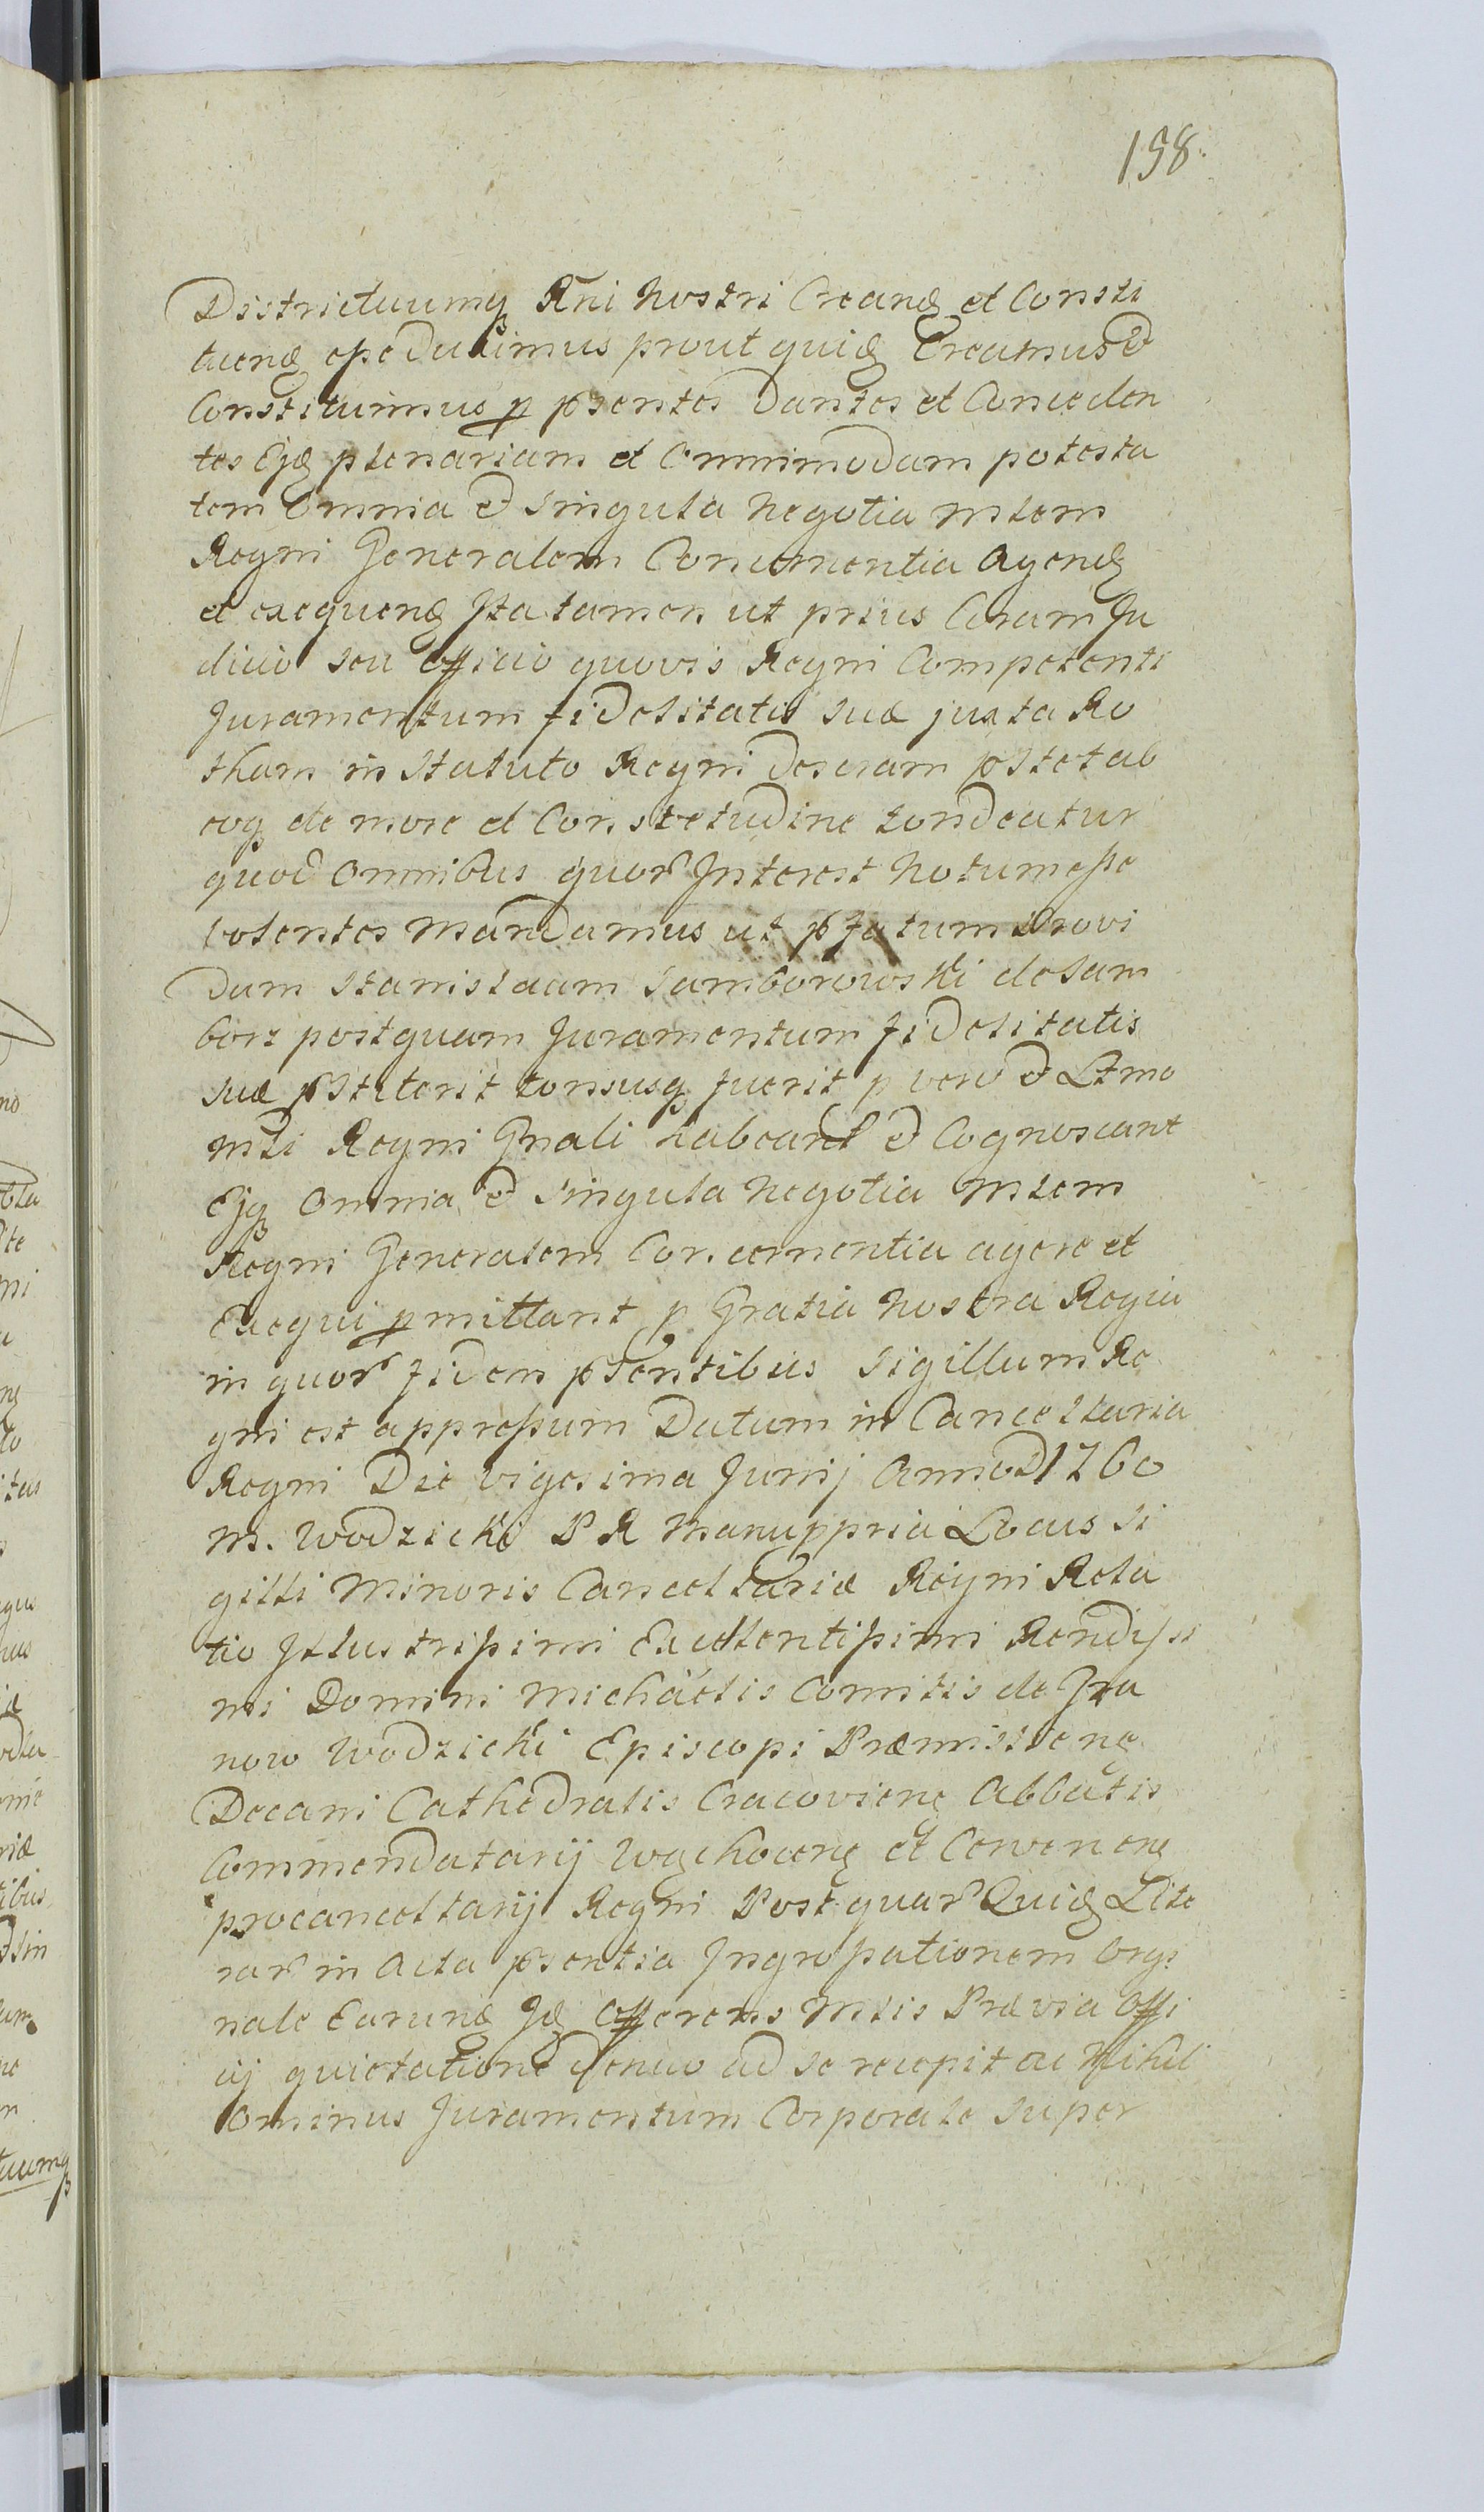 198.
Districtuumq Rni Nostri Creand et Consti
tuend esse duximus prout quid Creamus et
Constituimus p pséntes Dantes et Conceden
tes Ejd plenariam et Omnimodam potesta
tem Omnia et singula Negotia Mlem
Regni Generalem Concernentia Agend
et exequend Ita tamen ut prius Coram Ju
dicio seu Officio quovis Regni Competenti
Juramentum fidelitatis suæ juxta Ro
tham in Statuto Regni Descram pstet ab
eoq de more et Consvetudine tondeatur
quod Omnibus quor Interest Notum esse
volentes Mandamus ut pfatum Provi
dum Stanislaum Samborowski de Sam
borz postquam Juramentum fidelitatis
suæ pstiterit tonsusq fuerit p vero et Ltmo
Mli Regni Gnali habeant et Cognoscant
Ejq Omnia et singula Negotia Mlem
Regni Generalem Concernentia agere et
Exequi pmittant p Gratia Nostra Regia
in quor fidem psentibus Sigillum Re
gni est appressum Datum in Cancellaria
Regni Die vigesima Junij Anno D 1760
M. Wodzicki P R Manuppria Locus Si
gilli Minoris Cancellariæ Regni Rela
tio Illustrissimi Excellentissimi Rendissi
mi Domini Michäelis Comitis de Gra
now Wodzicki Episcopi Præmislens
Decani Cathedralis Cracoviens Abbatis
Commendatarij Wąchocens et Cervenens
procancellarij Regni Post quar Quid Lite
rar in Acta psentia Ingrossationem Orgi
nale Earund Id Offerens Mlis Prævia Offi
cij quietatione Denuo ad se recepit ac Nihil
Ominus Juramentum Corporale super